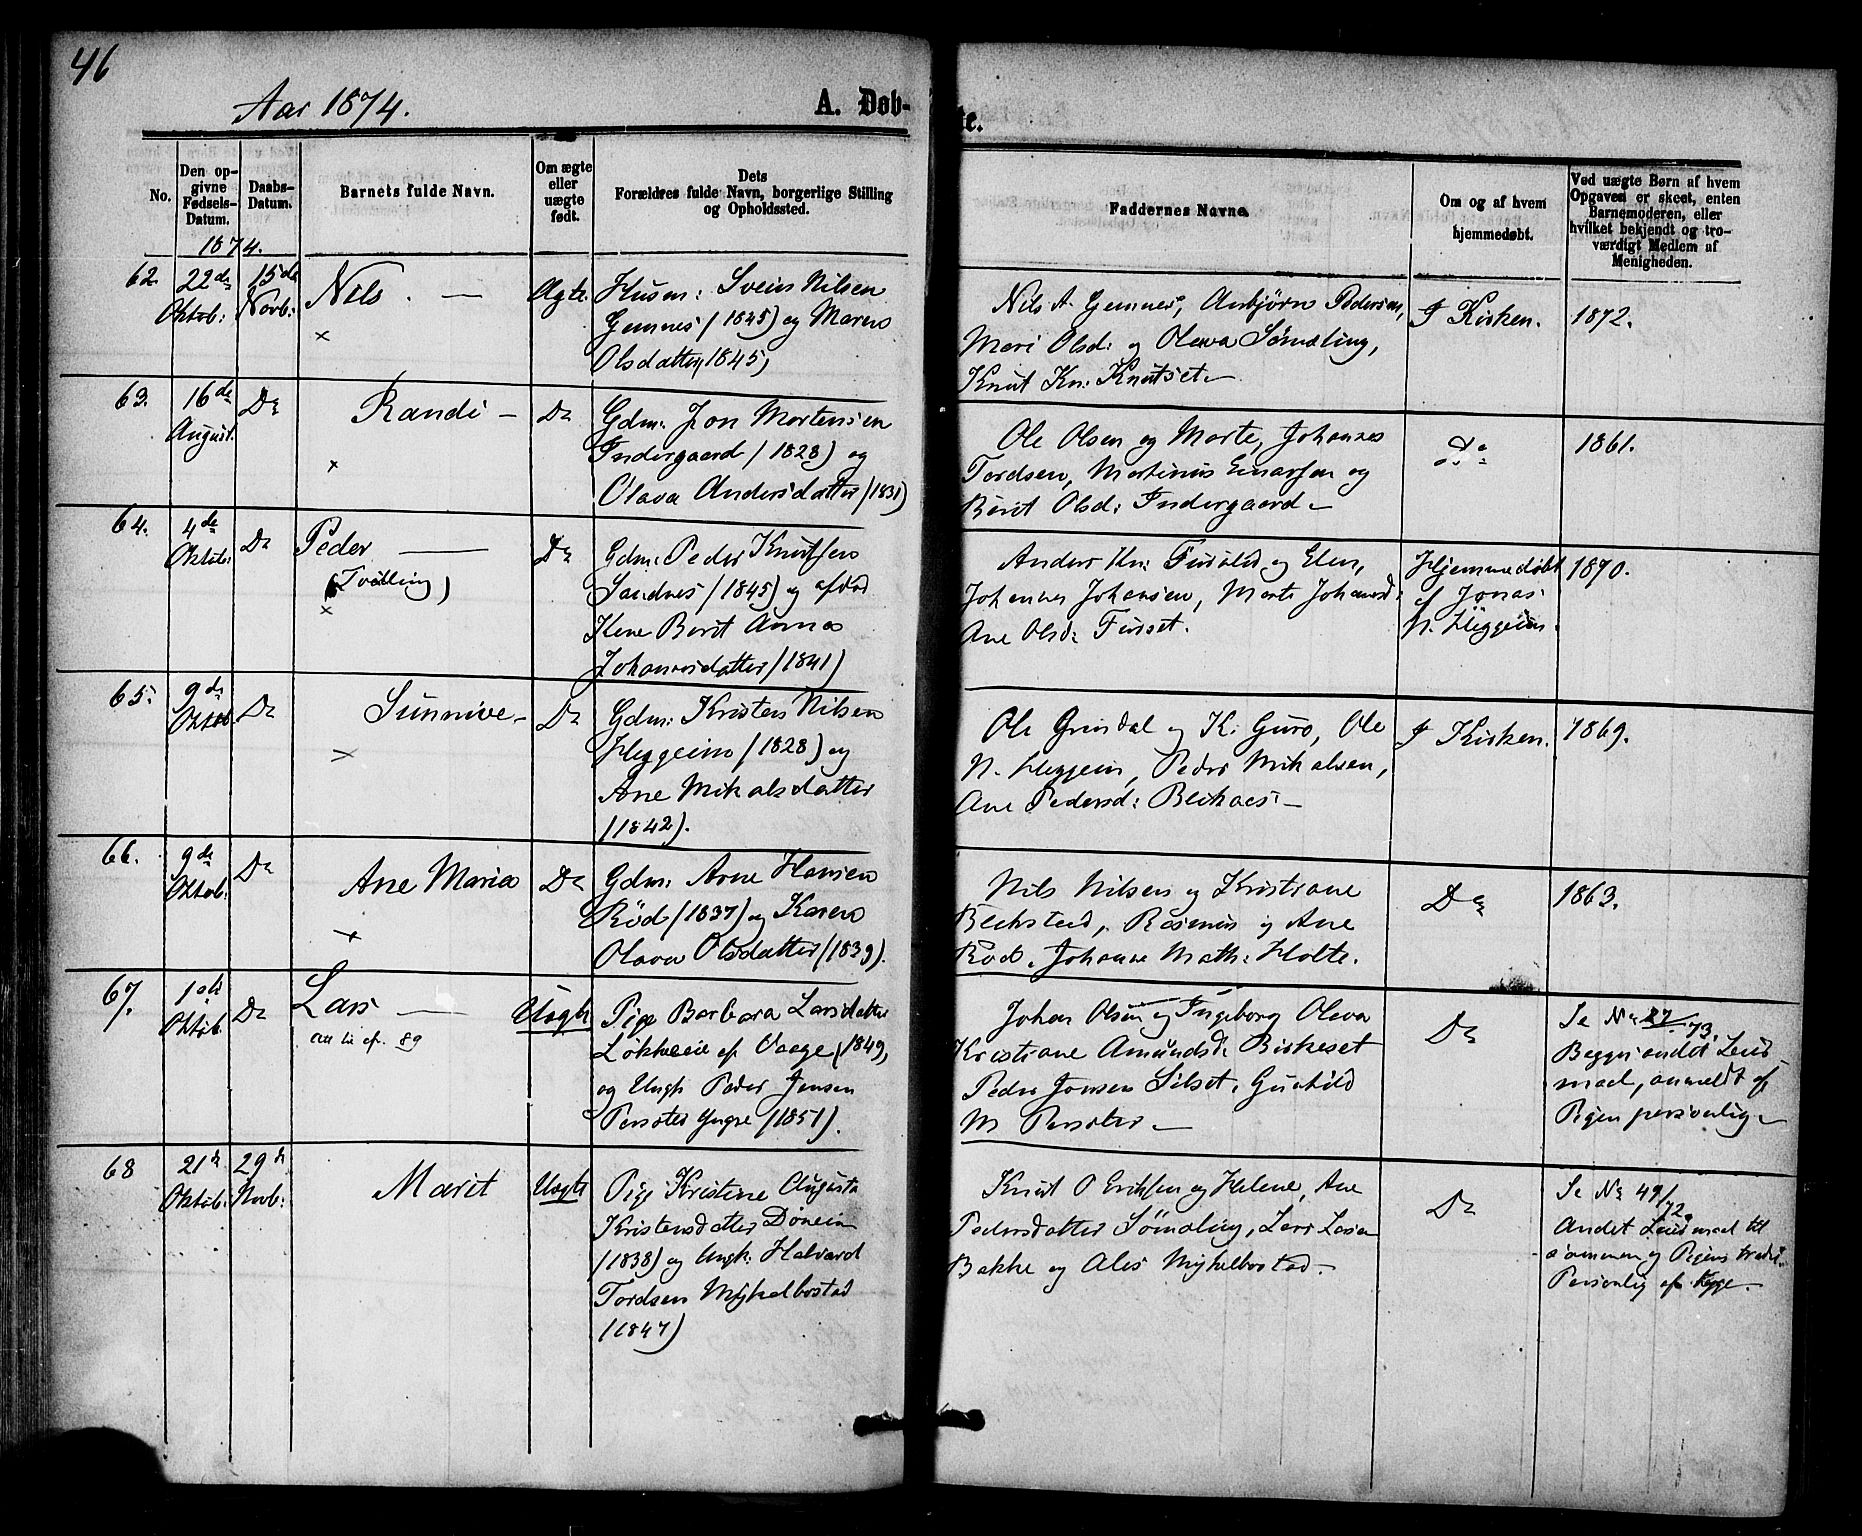 46
Aar 1874.
A. Døb-
te.
No.
Den op-
givne
Fødsels-
Datum.
Daabs-
Datum.
Barnets fulde Navn.
Om ægte
eller
uægte
født.
Dets
Forældres fulde Navn, borgerlige Stilling
og Opholdssted.
Faddernes Navne.
Om og af hvem
hjemmedøbt.
Ved uægte Børn af hvem
Opgaven er skeet, enten
Barnemoderen, eller
hvilket bekjendt og tro-
værdigt Medlem af
Menigheden.
1874.
62.
22de
Oktob:
15de
Novb:
Nils. —
×
Ægte.
Husm: Svein Nilsen
Gemnes (1845) og Maren
Olsdatter, 1845)
Nils A. Gemnes, Anbjørn Pedersen,
Mari Olsd: og Olava Sømæling,
Knut Kn: Knutset.
I Kirken.
1872.
63.
16de
August.
Do
Randi —
×
Do
Gdm: Jon Mortensen
Indergaard (1828) og
Olava Andersdatter (1831)
Ole Olsen og Marte, Johannes
Tordsen, Martinus Einarsen og
Berit Olsd: Indergaard —
Do
1861.
64.
4de
Oktob:
Do
Peder —
(Tvilling)
×
Do
Gdm: Peder Knutsen
Sandnes (1845) og afdød
Kone Berit Anna
Johannesdatter (1841)
Anders Kn: Fursetid og Elen,
Johannes Johansen, Marte Johannesd:
Ane Olsd: Furset.
Hjemmedøbt
Jonas
N. Heggeim.
1870.
65.
9de
Oktob
Do
Sunnive —
×
Do
Gdm: Kristen Nilsen
Heggeim (1828) og
Ane Mikalsdatter
(1842).
Ole Grindal og K. Guro, Ole
N. Heggeim, Peder Mikalsen,
Ane Pedersd: Blikaas —
I Kirken.
1869.
66.
9de
Oktob:
Do
Ane Maria
×
Do
Gdm: Arne Hansen
Rød (1837) og Karen
Olava Olsdatter (1839).
Nils Nilsen og Kristiane
Blikstad, Rasmus og Ane
Rød, Johanne Math: Holte.
Do
1863.
67.
1ste
Oktob.
Do
Lars —
Uægte
Pige Barbara Larsdatter
Løkkeeie af Vaage (1849,
og Ungk Peder Jensen
Persøter Yngre (1851).
Johan Olsen og Ingeborg Olava
Kristiane Amundsd: Birkeset
Peder Jonsen Silset, Gunhild
M Persøter —
Do
Se No 27/73.
Begges andet Leier-
maal, anmeldt af
Pigen personlig —
68
21de
Oktob:
29de
Novb:
Marit
Uægte
Pige Kristine Augusta
Kristensdatter Døneim
(1838) og Ungk: Halvard
Tordsen Mykelbostad
(1847)
Knut O Eriksen og Helene, Ane
Pedersdatter Sømæling, Lars Larsen
Bakke og Ales Mykelbostad. —
Do
Se No 49/72.
Andet Leiermaal til
sammen og Pigens tredie.
Personlig af begge.